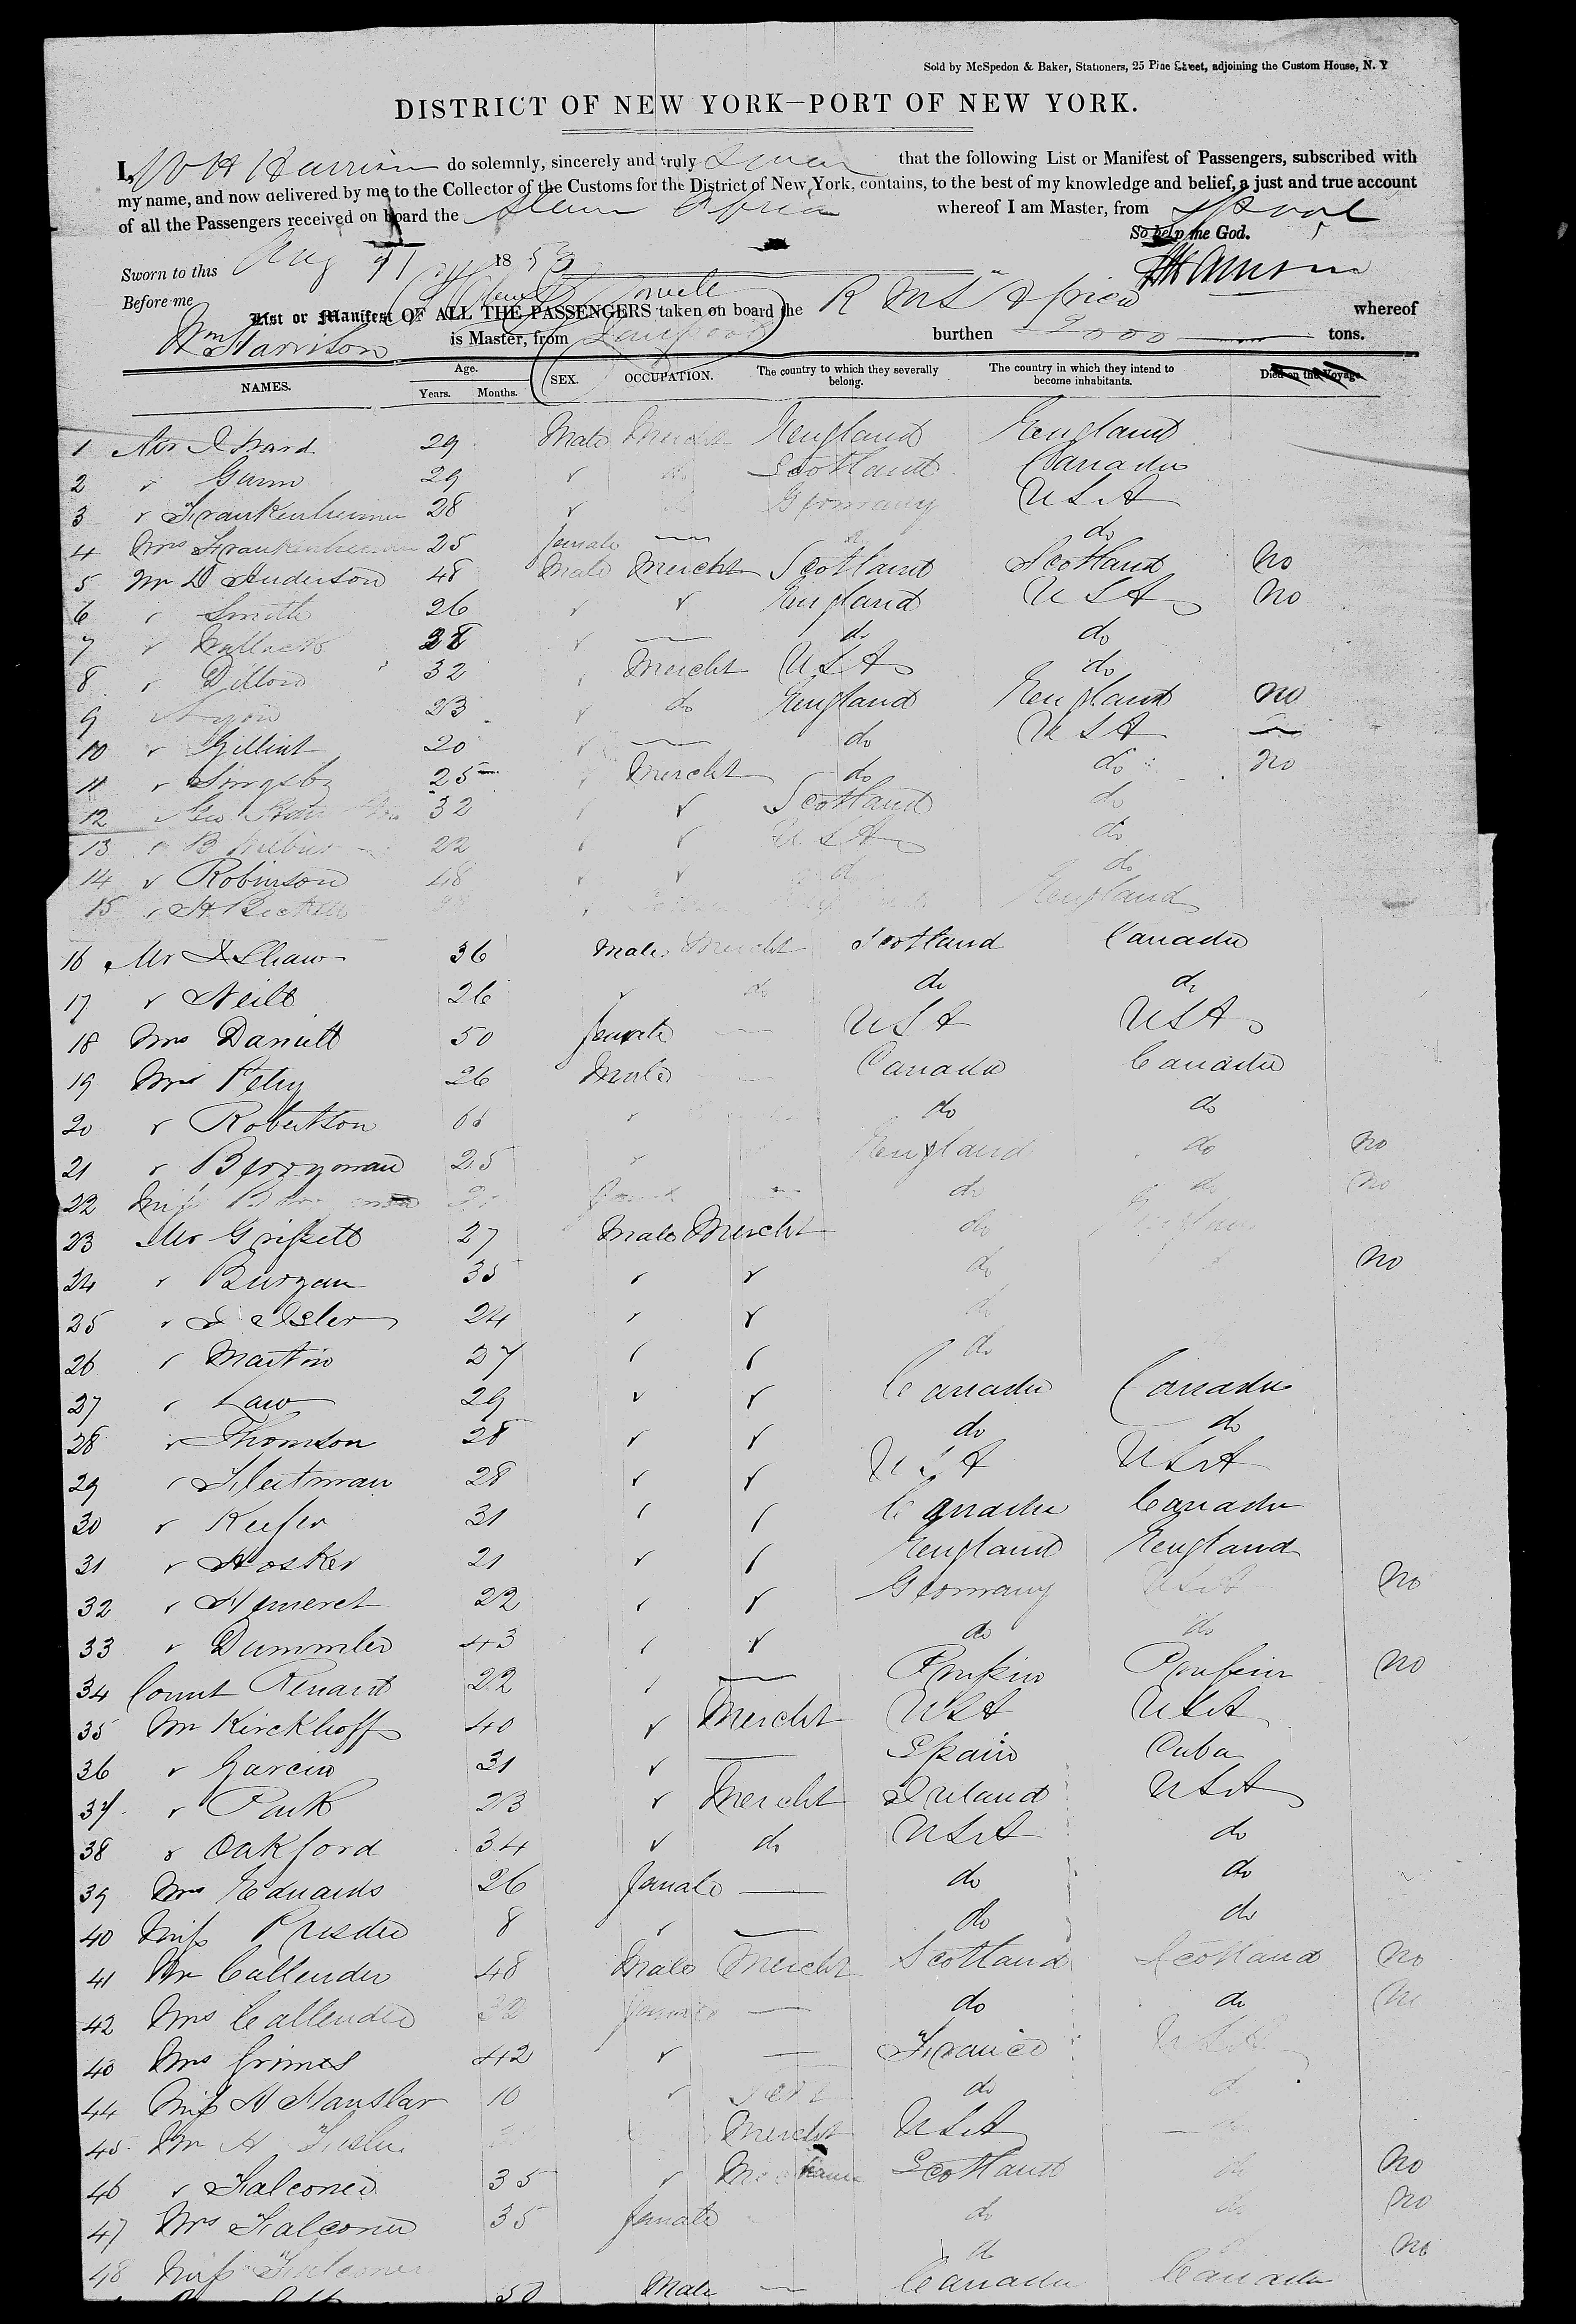 Sold by McSpedon & Baker, Stationers, 25 Pine Street, adjoining the Custom House, N. Y
DISTRICT OF NEW YORK—PORT OF NEW YORK.
I, W H Harrison do solemnly, sincerely and truly Swear that the following List or Manifest of Passengers, subscribed with
my name, and now delivered by me to the Collector of the Customs for the District of New York, contains, to the best of my knowledge and belief, a just and true account
of all the Passengers received on board the Steamer Africa whereof I am Master, from Lpool
So help me God.
Sworn to this Aug 1853
Before me
List or Manifest OF ALL THE PASSENGERS taken on board the R M S Africa whereof
Wm Harrison is Master, from Liverpool burthen 2000 tons.
NAMES. Age. Years. Months. SEX. OCCUPATION. The country to which they severally belong. The country in which they intend to become inhabitants. Died on the Voyage.
1 Mr J Ward 29 Male Mercht England England
2 " Gunn 29 " do Scotland Canada
3 " Frankenheimer 28 " do Germany USA
4 Mrs Frankenheimer 25 female — do do
5 Mr D Anderson 48 Male Mercht Scotland Scotland No
6 " Smith 26 " " England USA No
7 " Wallack 28 " — do do
8 " Dillon 32 " Mercht USA do
9 23 " do England England No
10 " Gillint 20 " — do USA —
11 " Singsby 25 " Mercht do do No
12 " Geo 32 " " Scotland do
13 " B 22 " " USA do
14 " Robinson 48 " " do do
15 " H Beckett " England
16 Mr J Shaw 36 Male Mercht Scotland Canada
17 " Neill 26 " do do do
18 Mrs Daniell 50 female — USA USA
19 Mr Petry 26 Male — Canada Canada
20 " Robertson " do do
21 " Berryman 25 " England do No
22 Miss Berryman female — do do No
23 Mr Grissell 27 Male Mercht do England
24 " Burgan 35 " " do No
25 " J Isler 24 " " do
26 " Martin 27 " " do
27 " Law 29 " " Canada Canada
28 " Thomson 28 " " do do
29 " Fleitman 28 " " USA USA
30 " Keefer 31 " " Canada Canada
31 " Hosker 21 " " England England
32 " Hemeret 22 " " Germany USA No
33 " Dummler 43 " " do do
34 Count Renard 22 " — Prussia Prussia No
35 Mr Kirckhoff 40 " Mercht USA USA
36 " Garcia 31 " — Spain Cuba
37 " Park 23 " Mercht Ireland USA
38 " Oakford 34 " do USA do
39 Mrs Edwards 26 female — do do
40 Miss 8 " — do do
41 Mr Callender 48 Male Mercht Scotland Scotland No
42 Mrs Callender 32 female — do do No
43 Mrs Grimes 42 " — France USA
44 Miss H Hauslar 10 " do do
45 Mr H Mercht USA —
46 " Falconer 35 " Mechanic Scotland do No
47 Mrs Falconer 35 female do do No
48 Miss Falconer do No
50 Male — Canada Canada